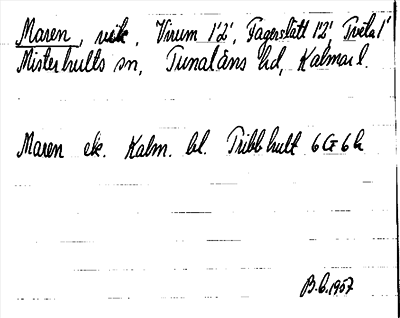 Maren, vik, Virum 1'2', Fagerslätt 1'2', Tveta 1'
Misterhults sn, Tunaläns hd, Kalmar l.
Maren ek. Kalm. bl. Tribbhult 6G6h
B.C. 1957